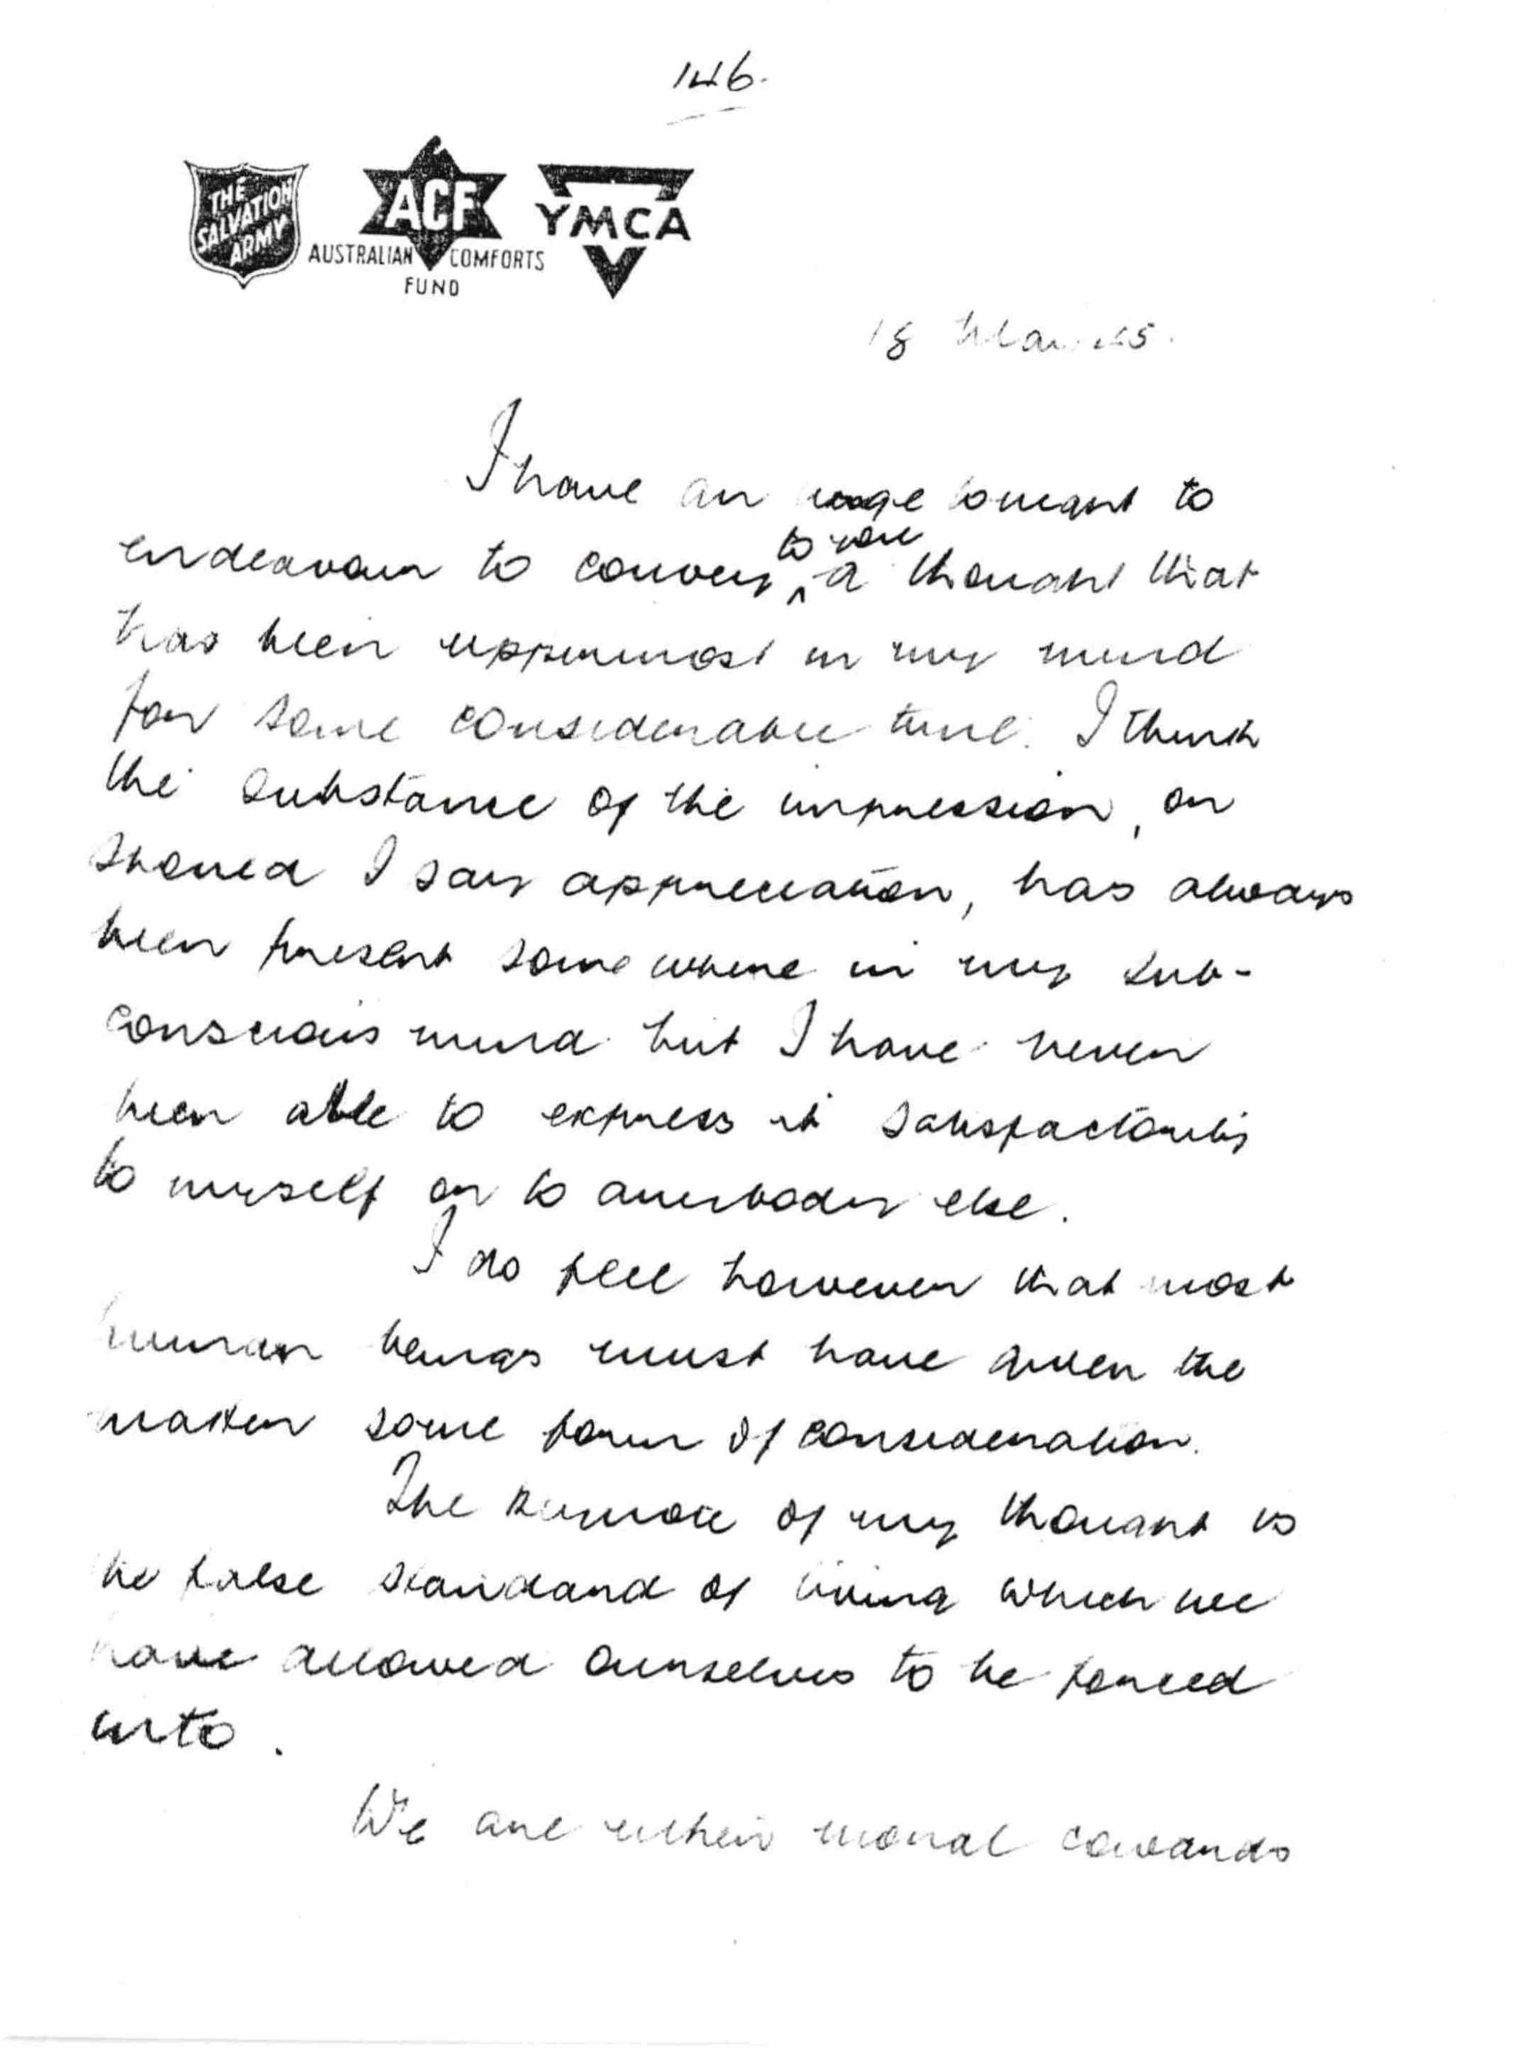 146.
THE
SALVATION
ARMY
ACF
AUSTRALIAN COMFORTS
FUND
YMCA
18 Mar 45.
I have an urge tonight to
endeavour to convey to you a thought that
has been uppermost in my mind
for some considerable time. I think
the substance of the impression, or
should I say appreciation, has always
been present somewhere in my sub-
conscious mind but I have never
been able to express it satisfactorily
to myself or to anybody else.
I do feel however that most
human beings must have given the
matter some form of consideration.
The of my thought is
the false standard of living which we
have allowed ourselves to be forced
into.
We are either moral cowards